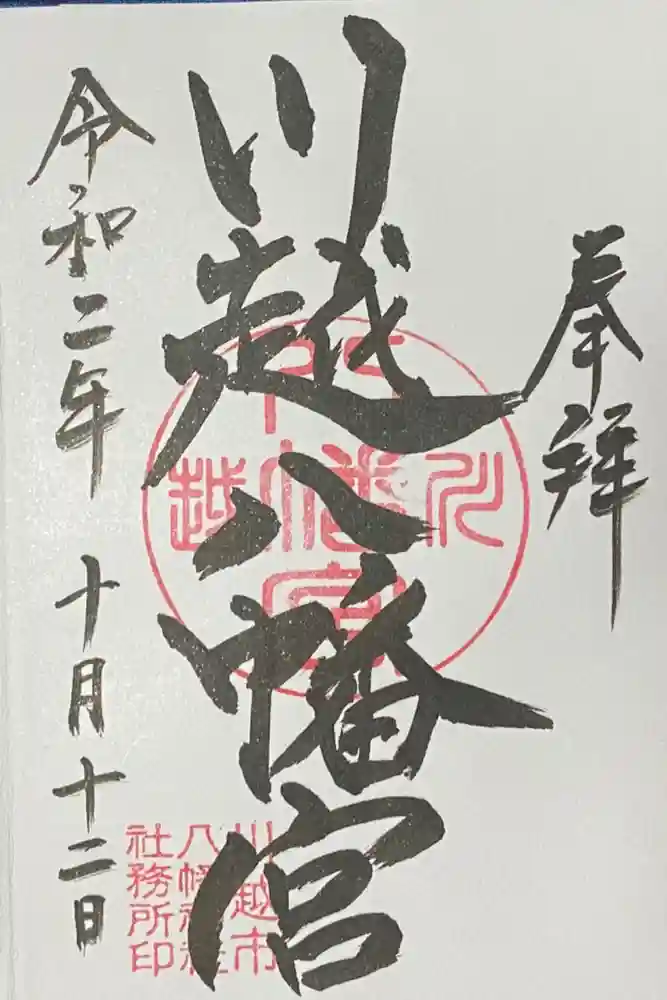 奉拝
川越八幡宮
令和二年 十月十二日
川越八幡宮
川越市
八幡神社
社務所印